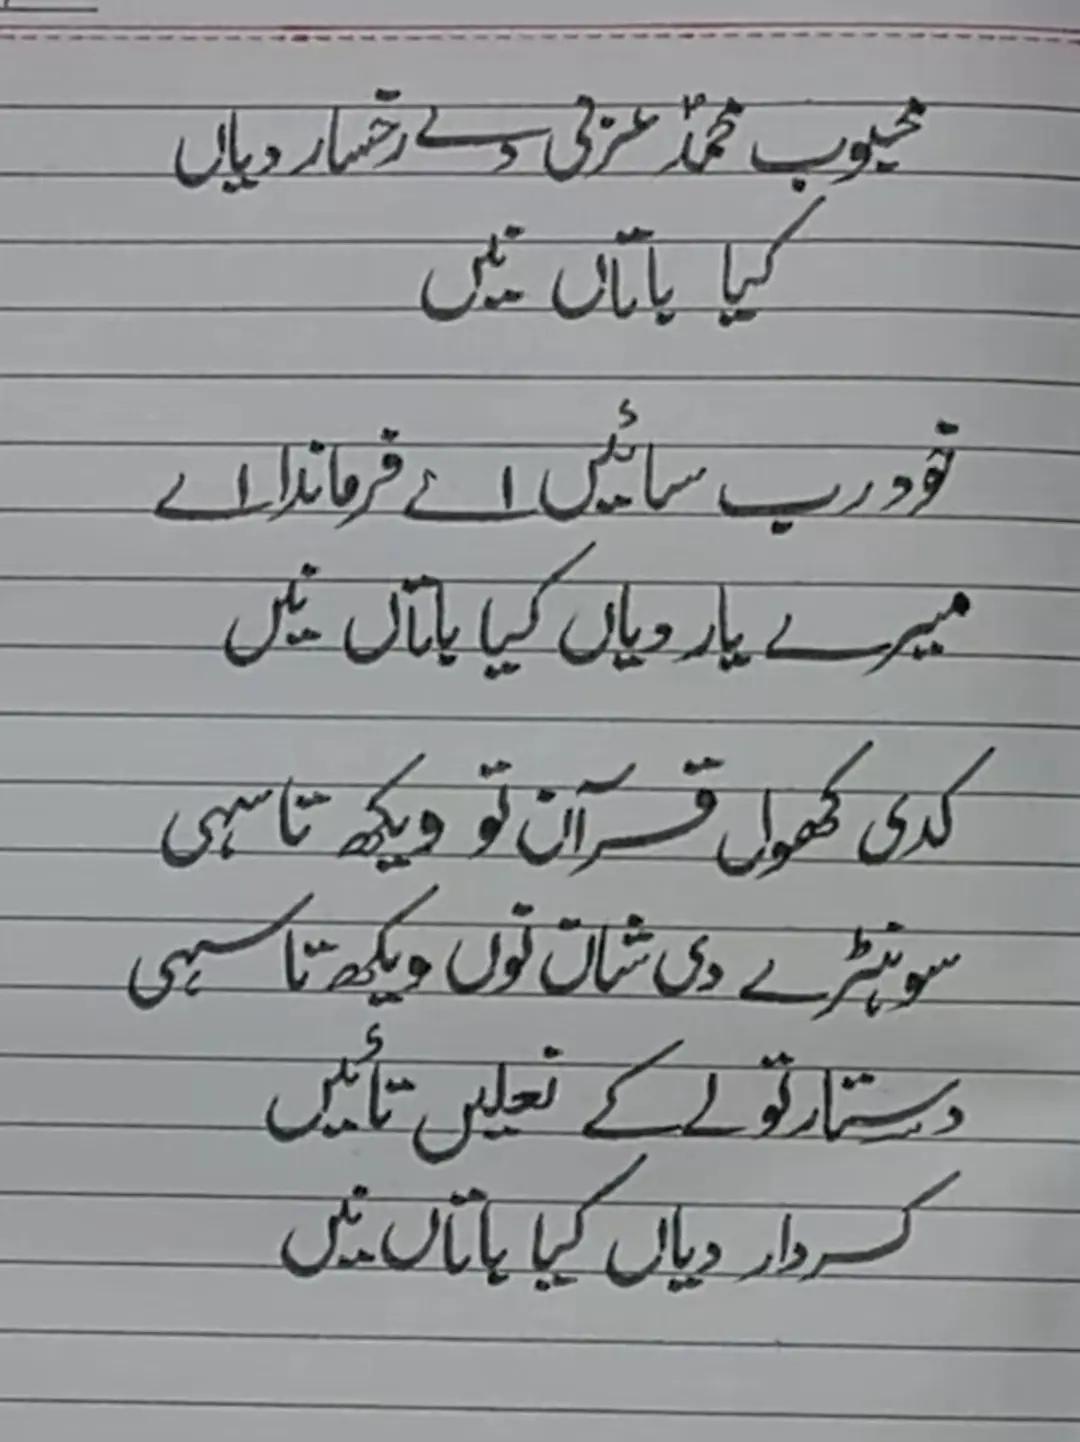 محبوب محمدؐ عربی دے رخسار دیاں
کیا باتاں نیں
خود رب سائیں اے فرماندا اے
میرے یار دیاں کیا باتاں نیں
کدی کھول قرآن تو ویکھ تا سہی
سوہنڑے دی شان توں ویکھ تا سہی
دستار تو لے کے نعلیں تائیں
کردار دیاں کیا باتاں نیں